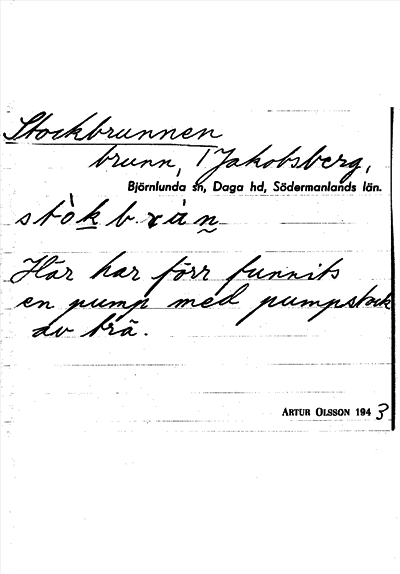 Stockbrunnen
brunn, 1 Jakobsberg,
Björnlunda sn, Daga hd, Södermanlands län.
stòkbràn
Här har förr funnits
en pump med pumpstock
av trä.
ARTUR OLSSON 1943